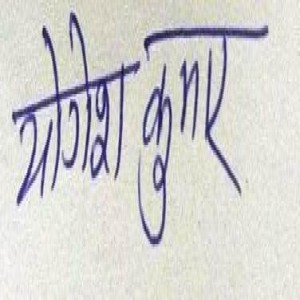 योगेश कुमार